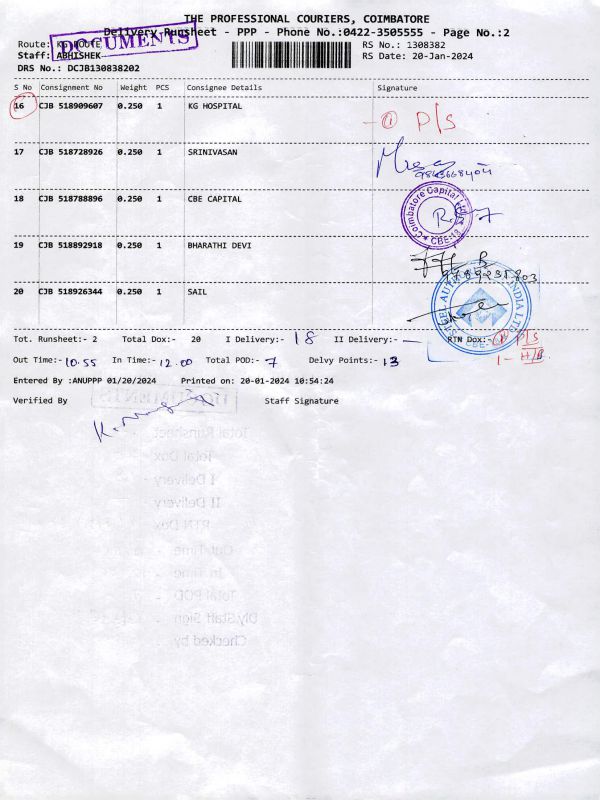 THE PROFESSIONAL COURIERS, COIMBATORE
Delivery Runsheet - PPP - Phone No.:0422-3505555 - Page No.:2
DOCUMENTS
Route: KG ROUTE RS No.: 1308382
Staff: ABHISHEK RS Date: 20-Jan-2024
DRS No.: DCJB130838202
S No Consignment No Weight PCS Consignee Details Signature
16 CJB 518909607 0.250 1 KG HOSPITAL ① P/S
17 CJB 518728926 0.250 1 SRINIVASAN
18 CJB 518788896 0.250 1 CBE CAPITAL
Coimbatore Capital
CBE-18
19 CJB 518892918 0.250 1 BHARATHI DEVI
9789235803
20 CJB 518926344 0.250 1 SAIL
STEEL AUTHORITY INDIA LTD
CBE
Tot. Runsheet:- 2 Total Dox:- 20 I Delivery:- 18 II Delivery:- RTN Dox:- ① P/S
1 - H/B
Out Time:- 10.55 In Time:- 12.00 Total POD:- 7 Delvy Points:- 13
Entered By :ANUPPP 01/20/2024 Printed on: 20-01-2024 10:54:24
Verified By Staff Signature
DOCUMENTS
Total Runsheet
Total Dox
I Delivery
II Delivery
RTN Dox
Out Time
In Time
Total POD
Dly.Staff Sign
Checked by